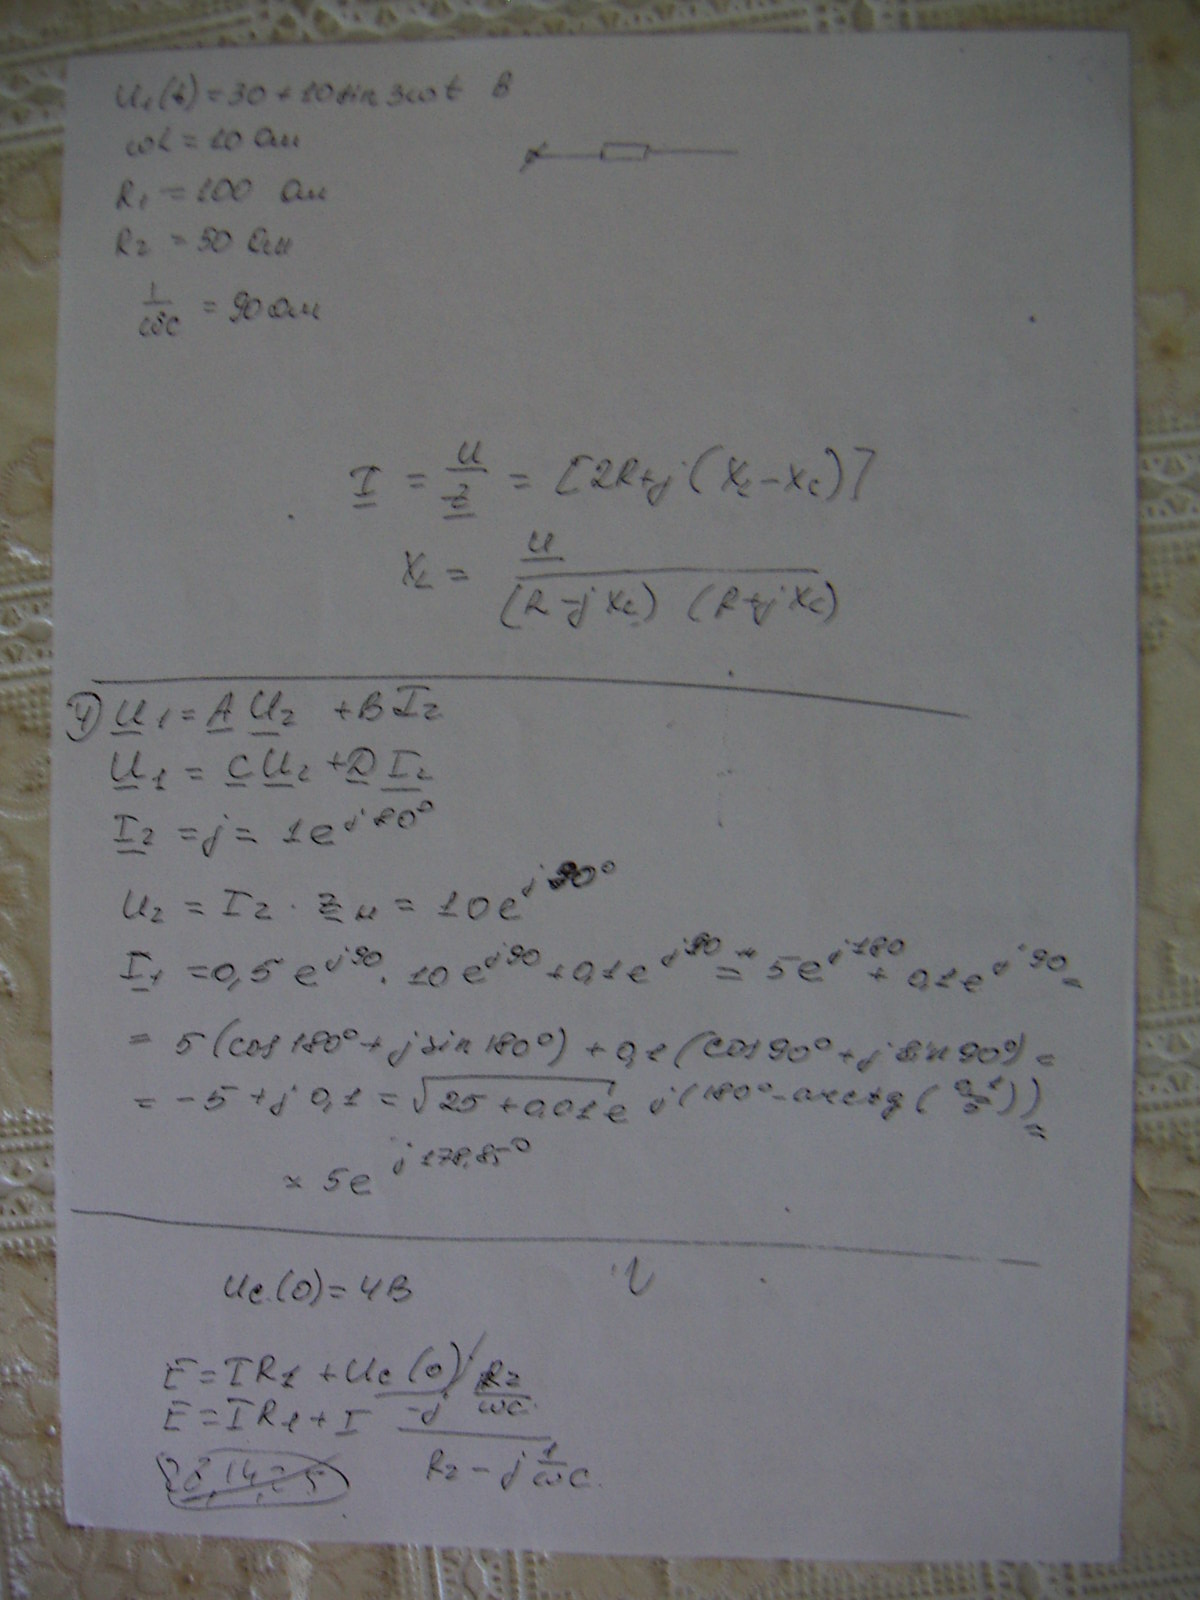 U₁(t) = 30 + 10 sin 3ωt В
ωL = 10 Ом
R₁ = 100 Ом
R₂ = 50 Ом
1/ωC = 90 Ом
I = U/Z = [2R + j(X_L − X_C)]
X_L = U / (R − jX_C) (R + jX_C)
4) U₁ = A U₂ + B I₂
U₁ = C U₂ + D I₂
I₂ = j = 1e^(j90°)
U₂ = I₂ · Z_н = 10e^(j90°)
I₁ = 0,5e^(j90) · 10e^(j90) + 0,1e^(j90) = 5e^(j180) + 0,1e^(j90) =
= 5(cos 180° + j sin 180°) + 0,1(cos 90° + j sin 90°) =
= −5 + j 0,1 = √(25 + 0,01) e^(j(180° − arctg(0,1/5))) =
≈ 5e^(j178,85°)
Uc(0) = 4В
E = I R₁ + Uc(0) / R₂
E = I R₁ + I (−j R₂/ωC) / (R₂ − j 1/ωC)